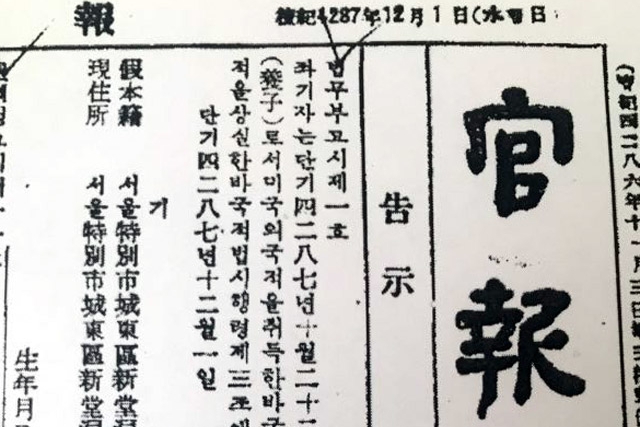 報
檀紀4287年12月1日(水曜日
官報
告示
법무부고시제一호
좌기자는단기四二八七년十월二十
(養子)로서미국의국적을취득한바국
적을상실한바국적법시행령제三조에
단기四二八七년十二월一일
기
假本籍 서울特別市城東區新堂洞
現住所 서울特別市城東區新堂洞
生年月